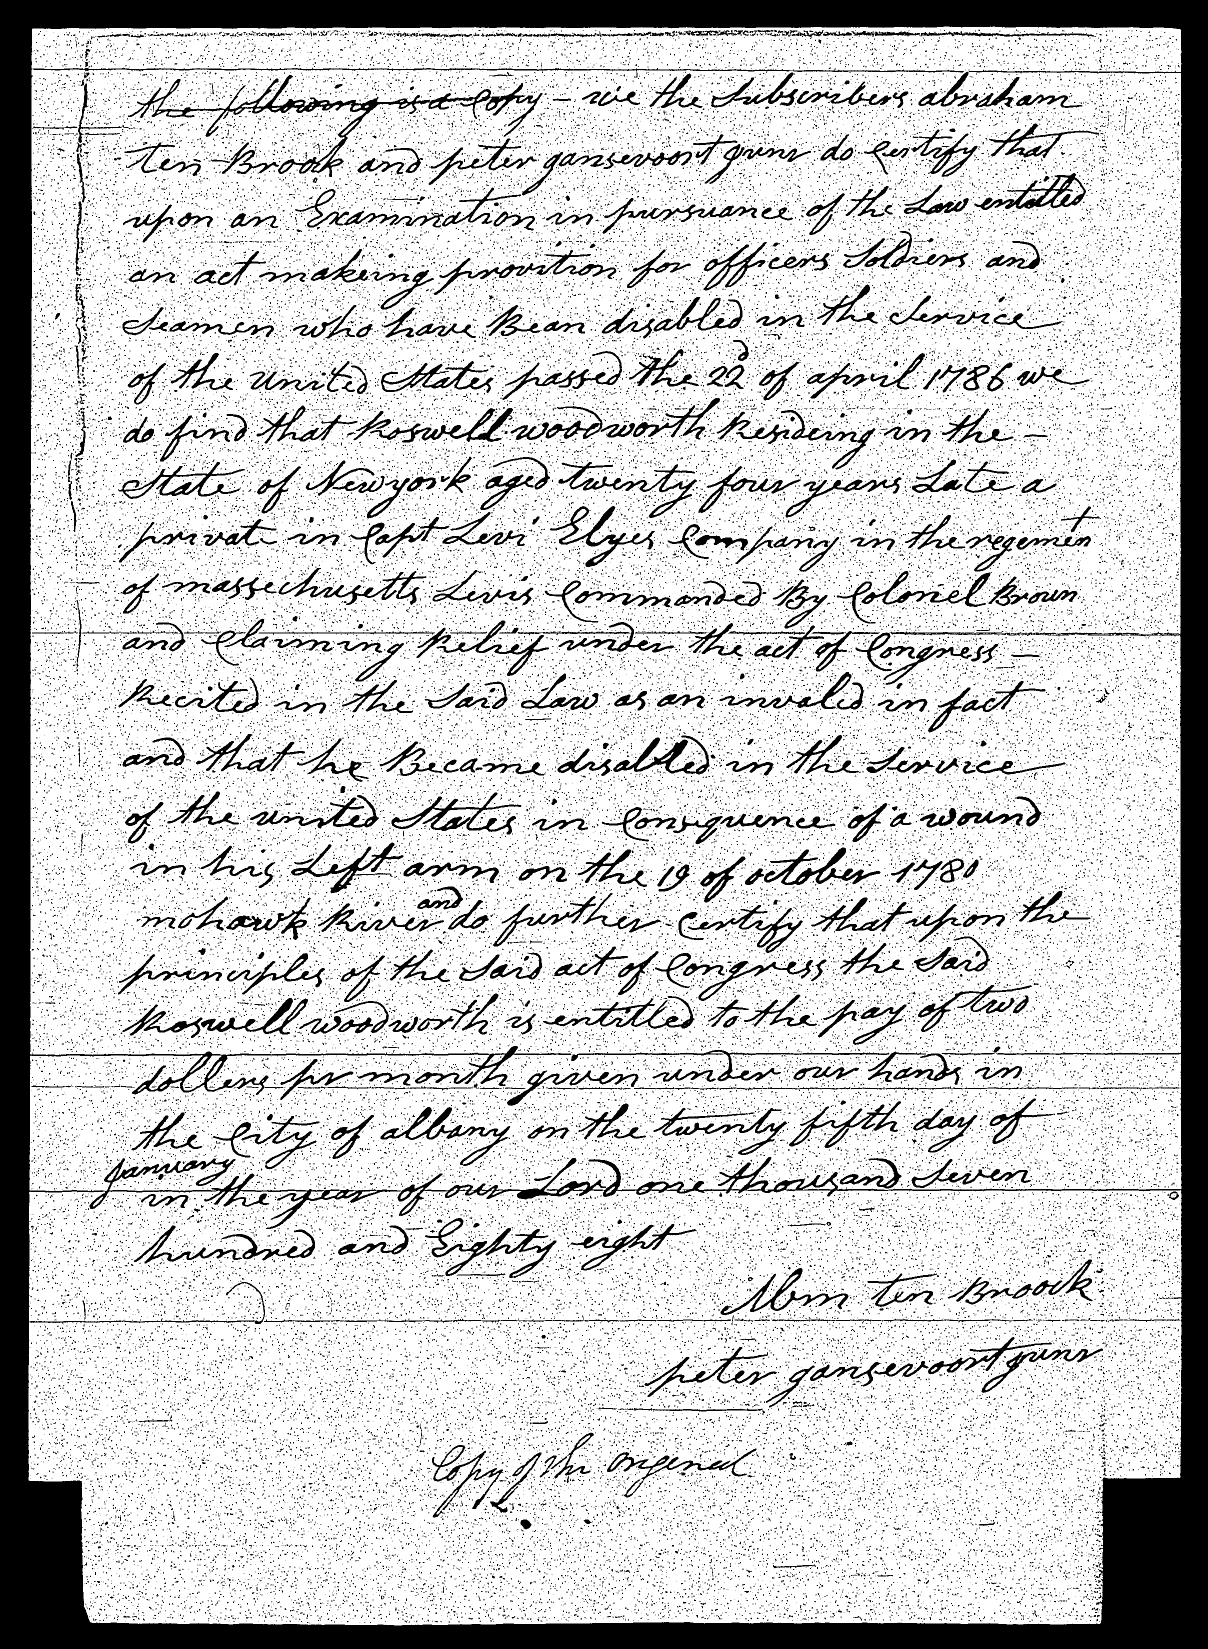 the following is a Copy – we the Subscribers abraham
ten Brook and peter gansevoort junr do Certify that
upon an Examination in pursuance of the Law entitled
an act makeing provition for officers Soldiers and
Seamen who have Bean disabled in the Service
of the United States passed the 22d of april 1786 we
do find that Roswell woodworth Resideing in the –
State of Newyork aged twenty four years Late a
private in Capt Levi Elyes Company in the regement
of massechusetts Levis Commanded By Colonel Brown
and Claiming Relief under the act of Congress –
Recited in the Said Law as an invaled in fact
and that he Became disabled in the Service
of the united States in Consequence of a wound
in his Left arm on the 19 of october 1780
mohawk River and do further Certify that upon the
principles of the Said act of Congress the Said
Roswell woodworth is entitled to the pay of two
dollers pr month given under our hands in
the City of albany on the twenty fifth day of
January
in the year of our Lord one thousand Seven
hundred and Eighty eight
Abm ten Broock
peter gansevoort junr
Copy of the Original